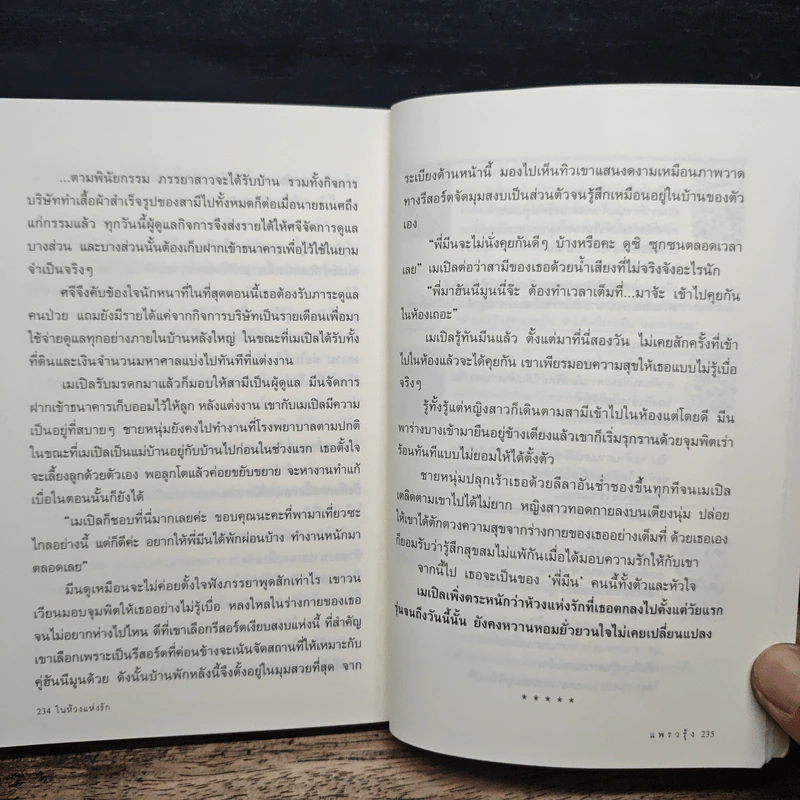 ...ตามพินัยกรรม ภรรยาสาวจะได้รับบ้าน รวมทั้งกิจการ
บริษัททำเสื้อผ้าสำเร็จรูปของสามีไปทั้งหมดก็ต่อเมื่อนายธเนศถึง
แก่กรรมแล้ว ทุกวันนี้ผู้ดูแลกิจการจึงส่งรายได้ให้ศจีจัดการดูแล
บางส่วน และบางส่วนนั้นต้องเก็บฝากเข้าธนาคารเพื่อไว้ใช้ในยาม
จำเป็นจริงๆ
ศจีจึงคับข้องใจนักหนาที่ในที่สุดตอนนี้เธอต้องรับภาระดูแล
คนป่วย แถมยังมีรายได้แค่จากกิจการบริษัทเป็นรายเดือนเพื่อมา
ใช้จ่ายดูแลทุกอย่างภายในบ้านหลังใหญ่ ในขณะที่เมเปิลได้รับทั้ง
ที่ดินและเงินจำนวนมหาศาลแบ่งไปทันทีที่แต่งงาน
เมเปิลรับมรดกมาแล้วก็มอบให้สามีเป็นผู้ดูแล มีนจัดการ
ฝากเข้าธนาคารเก็บออมไว้ให้ลูก หลังแต่งงาน เขากับเมเปิลมีความ
เป็นอยู่ที่สบายๆ ชายหนุ่มยังคงไปทำงานที่โรงพยาบาลตามปกติ
ในขณะที่เมเปิลเป็นแม่บ้านอยู่กับบ้านไปก่อนในช่วงแรก เธอตั้งใจ
จะเลี้ยงลูกด้วยตัวเอง พอลูกโตแล้วค่อยขยับขยาย จะหางานทำแก้
เบื่อในตอนนั้นก็ยังได้
“เมเปิลก็ชอบที่นี่มากเลยค่ะ ขอบคุณนะคะที่พามาเที่ยวซะ
ไกลอย่างนี้ แต่ก็ดีค่ะ อยากให้พี่มีนได้พักผ่อนบ้าง ทำงานหนักมา
ตลอดเลย”
มีนดูเหมือนจะไม่ค่อยตั้งใจฟังภรรยาพูดสักเท่าไร เขาวน
เวียนมอบจุมพิตให้เธออย่างไม่รู้เบื่อ หลงใหลในร่างกายของเธอ
จนไม่อยากห่างไปไหน ดีที่เขาเลือกรีสอร์ตเงียบสงบแห่งนี้ ที่สำคัญ
เขาเลือกเพราะเป็นรีสอร์ตที่ค่อนข้างจะเน้นจัดสถานที่ให้เหมาะกับ
คู่ฮันนีมูนด้วย ดังนั้นบ้านพักหลังนี้จึงตั้งอยู่ในมุมสวยที่สุด จาก
234 ในห้วงแห่งรัก
ระเบียงด้านหน้านี้ มองไปเห็นทิวเขาแสนงดงามเหมือนภาพวาด
ทางรีสอร์ตจัดมุมสงบเป็นส่วนตัวจนรู้สึกเหมือนอยู่ในบ้านของตัว
เอง
“พี่มีนจะไม่นั่งคุยกันดีๆ บ้างหรือคะ ดูซิ ซุกซนตลอดเวลา
เลย” เมเปิลต่อว่าสามีของเธอด้วยน้ำเสียงที่ไม่จริงจังอะไรนัก
“พี่มาฮันนีมูนนี่จ๊ะ ต้องทำเวลาเต็มที่...มาจ้ะ เข้าไปคุยกัน
ในห้องเถอะ”
เมเปิลรู้ทันมีนแล้ว ตั้งแต่มาที่นี่สองวัน ไม่เคยสักครั้งที่เข้า
ไปในห้องแล้วจะได้คุยกัน เขาเพียรมอบความสุขให้เธอแบบไม่รู้เบื่อ
จริงๆ
รู้ทั้งรู้แต่หญิงสาวก็เดินตามสามีเข้าไปในห้องแต่โดยดี มีน
พาร่างบางเข้ามายืนอยู่ข้างเตียงแล้วเขาก็เริ่มรุกรานด้วยจุมพิตเร่า
ร้อนทันทีแบบไม่ยอมให้ได้ตั้งตัว
ชายหนุ่มปลุกเร้าเธอด้วยลีลาอันช่ำชองขึ้นทุกทีจนเมเปิล
เตลิดตามเขาไปได้ไม่ยาก หญิงสาวทอดกายลงบนเตียงนุ่ม ปล่อย
ให้เขาได้ตักตวงความสุขจากร่างกายของเธออย่างเต็มที่ ด้วยเธอเอง
ก็ยอมรับว่ารู้สึกสุขสมไม่แพ้กันเมื่อได้มอบความรักให้กับเขา
จากนี้ไป เธอจะเป็นของ ‘พี่มีน’ คนนี้ทั้งตัวและหัวใจ
เมเปิลเพิ่งตระหนักว่าห้วงแห่งรักที่เธอตกลงไปตั้งแต่วัยแรก
รุ่นจนถึงวันนี้นั้น ยังคงหวานหอมยั่วยวนใจไม่เคยเปลี่ยนแปลง
* * * * *
แพรวรุ้ง 235